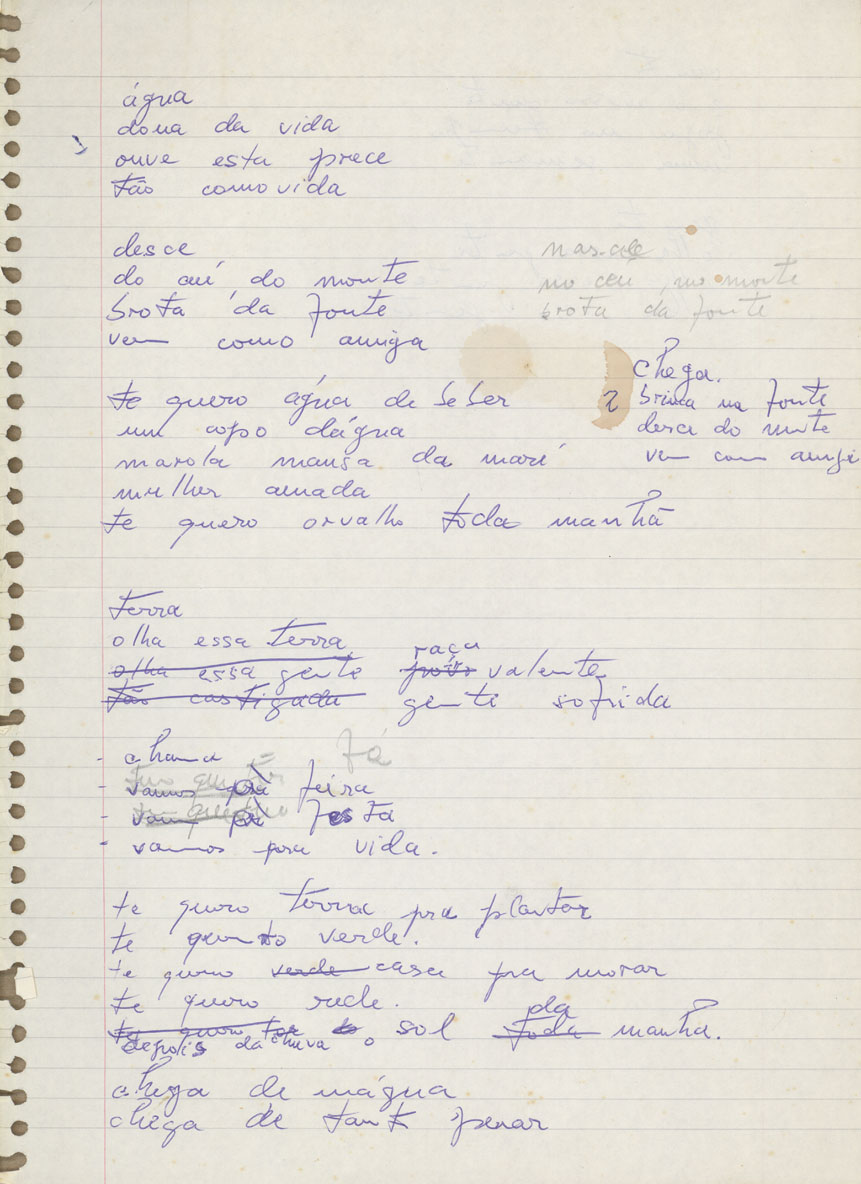 água
dona da vida
ouve esta prece
tão comovida
desce
do céu, do monte
brota da fonte
vem como amiga
nasce
no ceu, no monte
brota da fonte
chega.
2 brinca na fonte
desce do monte
vem como amiga
te quero água de beber
um copo dágua
marola mansa da maré
mulher amada
te quero orvalho toda manhã
terra
olha essa terra
olha essa gente raça valente
tão castigada gente sofrida
- chama
- vamos pra feira
- vamos pra festa
- vamos pra vida.
te quero terra pra plantar
te quero verde.
te quero verde casa pra morar
te quero rede.
te quero ter
depois da chuva o sol toda da manhã.
chega de mágua
chega de tanto penar